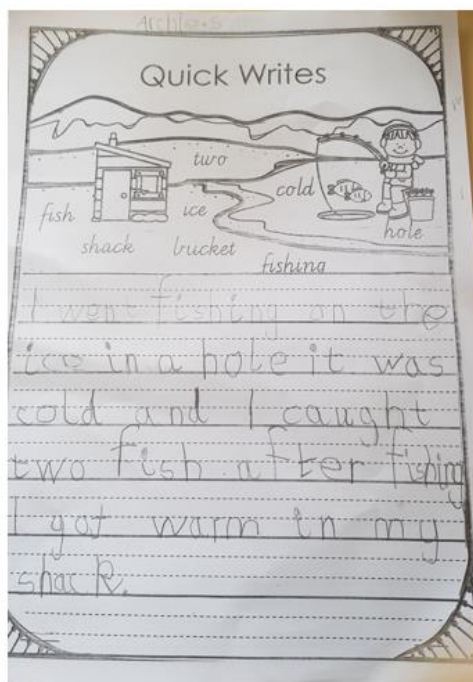 Quick Writes
two
cold
fish
ice
hole
shack
bucket
fishing
I went fishing on the
ice in a hole it was
cold and I caught
two fish after fishing
I got warm in my
shack.